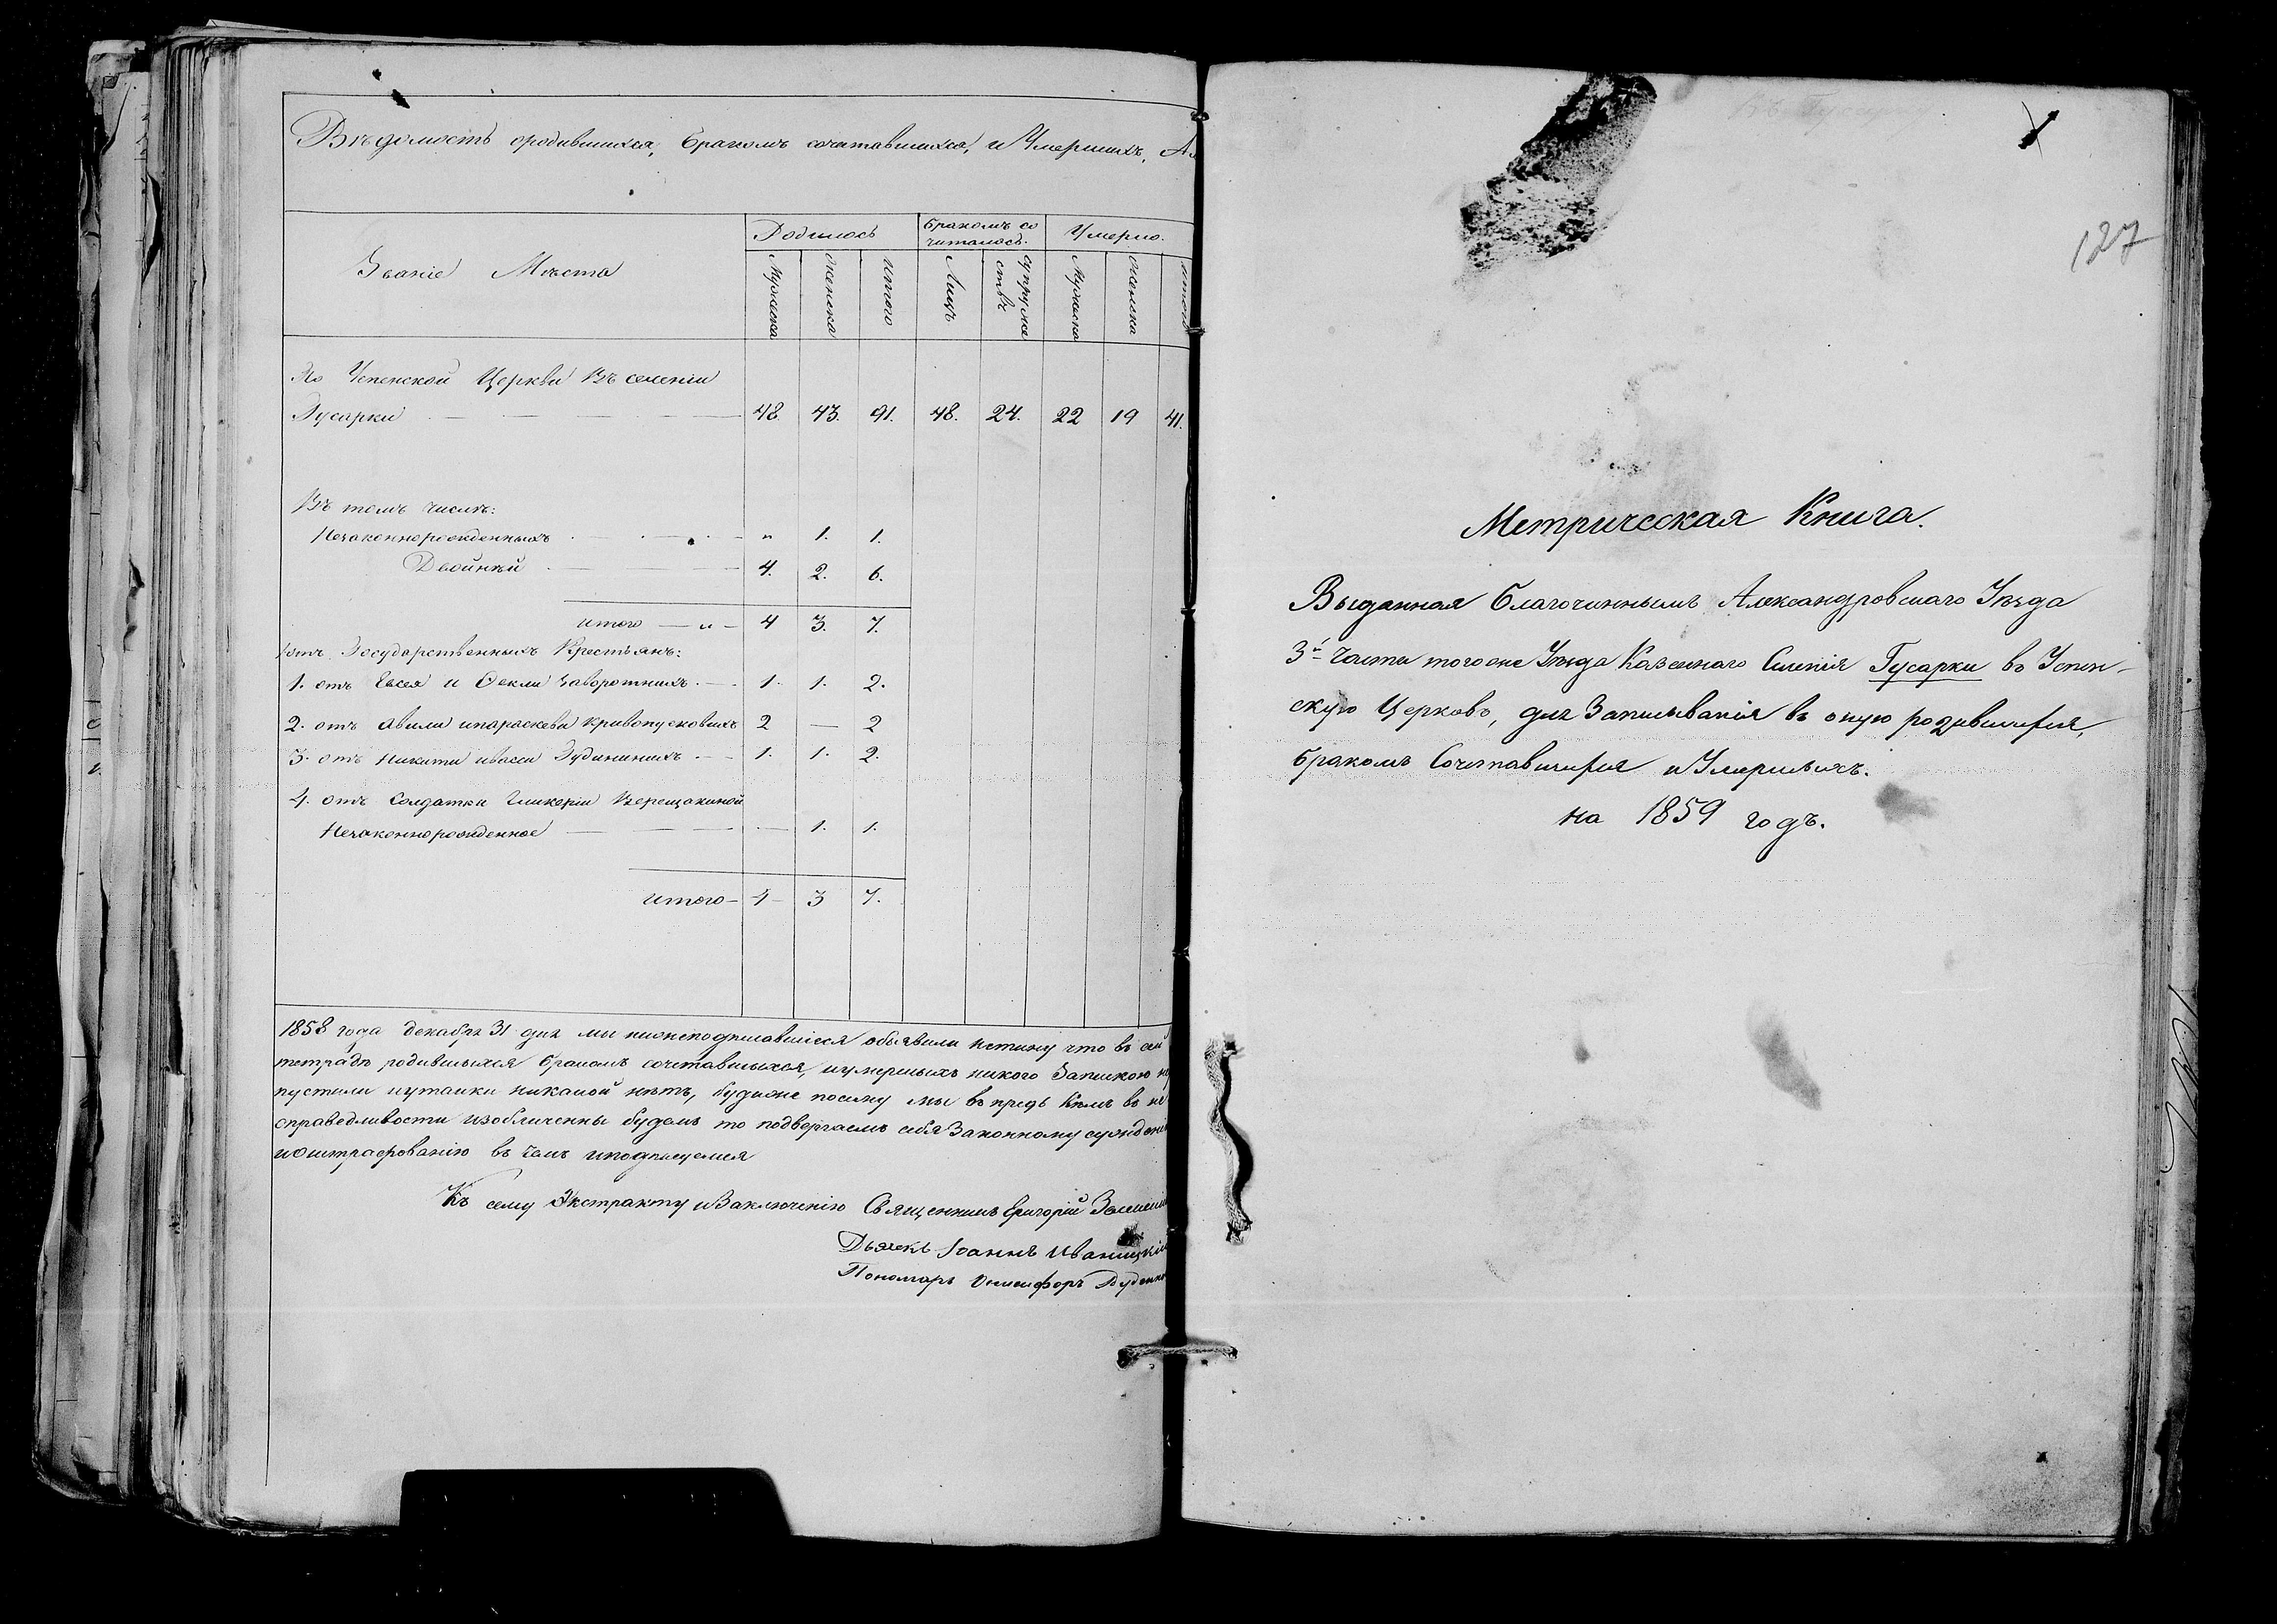 Вѣдомость ородившихся, бракомъ сочитавшихся, и Умершихъ, Ал
Званіе Мѣста
Родилось
бракомъ со
читалось.
Умерло.
Мужеска
женска
итого
Лицъ
супруже
ствъ
Мужеска
женска
итого
По Успенской Церкви въ селеніи
Гусарки 48. 43. 91. 48. 24. 22 19 41.
Въ томъ числѣ:
Незаконнорожденныхъ „ 1. 1.
Двойнѣй 4. 2. 6.
итого — „ — 4 3. 7.
отъ Государственныхъ Крестьянъ:
1. отъ Евсея и Ѳеклы Заворотнихъ. 1. 1. 2.
2. отъ Авили ипараскеви Кривопусковыхъ 2 — 2
3. отъ Никити иваси Гудининихъ 1. 1. 2.
4. отъ Солдатки Гликеріи Верещакиной
Незаконнорожденное 1. 1.
итого 4 3 7.
1858 года декабря 31 дня мы нижеподписавшіеся объявили истину что въ сей
тетрадѣ родившихся бракомъ сочетавшихся, иумершихъ никого Запискою не
пустили иутайки никакой нѣтъ, будиже посему мы въ предь кѣмъ въ не
справедливости изобличенны будемъ то подвергаемъ себя Законному сужденію
иоштрафованію въ чемъ иподписуемся
Къ сему Экстракту иЗаключенію Священникъ Григорій
Дьячкъ Іоаннъ Иваницкій
Пономарь Онисифоръ Руденко
127
Метрическая Книга.
Выданная благочиннымъ Александровскаго Уѣзда
3й Части тогоже Уѣзда Казеннаго Селенія Гусарки въ Успен-
скую Церковь, для Записыванія въ оную родившихся,
бракомъ Сочетавшихся иУмершихъ.
на 1859 годъ.